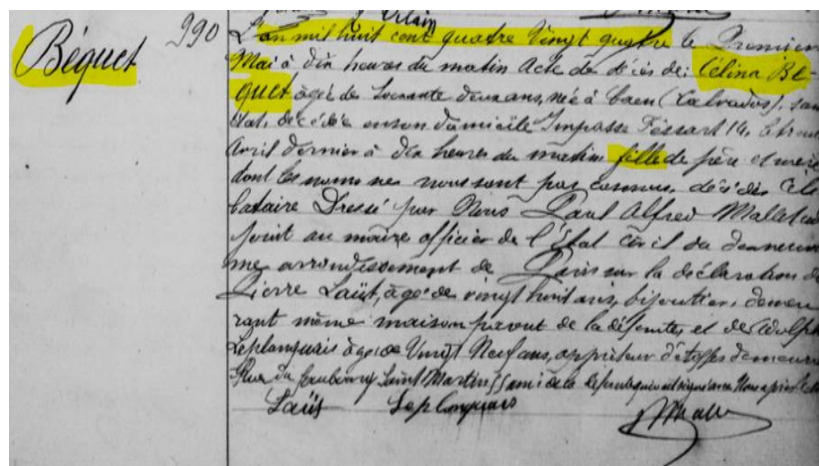 990
Béquet
L'an mil huit cent quatre Vingt quatre le Premier
Mai à dix heures du matin Acte de décès de: Célina BE-
QUET âgée de Soixante deux ans, née à Caen (Calvados), sans
état, décédée en son domicile Impasse Fessart 14, le trente
Avril dernier à dix heures du matin fille de père et mère
dont les noms ne nous sont pas connus, décédée Céli
bataire Dressé par Nous Paul Alfred Mallet ad
joint au maire officier de l'état civil du dixneuviè
me arrondissement de Paris sur la déclaration de
Pierre Laüt, âgé de vingt huit ans, bijoutier, demeu
rant même maison parent de la défunte, et de
Leplanquais âgé de Vingt Neuf ans, apprêteur d'étoffes demeurant
Rue du faubourg Saint Martin ami de la défunte qui ont signé avec Nous après lecture
Laüt Leplanquais